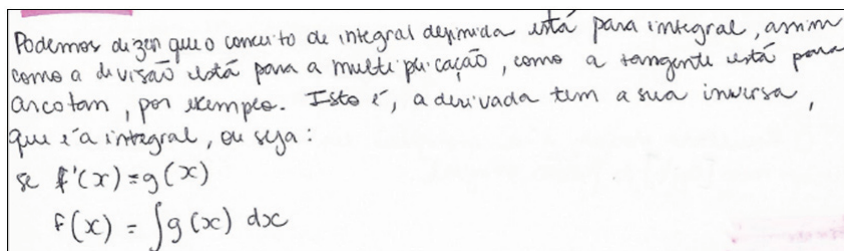 Podemos dizer que o conceito de integral definida está para integral, assim
como a divisão está para a multipicação, como a tangente está para
arcotan, por exemplo. Isto é, a derivada tem a sua inversa,
que é a integral, ou seja:
se f'(x)=g(x)
F(x) = ∫g(x) dx